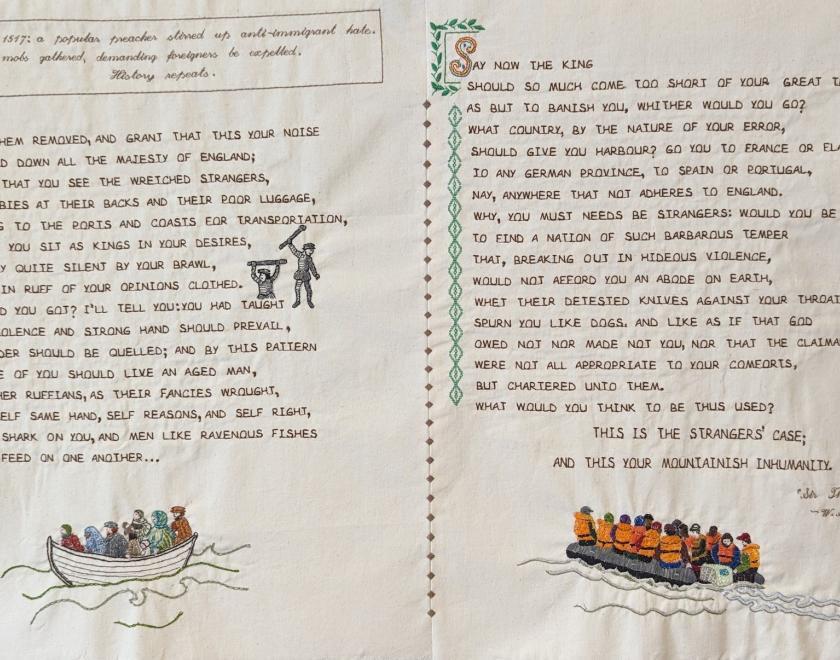 1517: a popular preacher stirred up anti-immigrant hate.
mobs gathered, demanding foreigners be expelled.
History repeats.
HEM REMOVED, AND GRANT THAT THIS YOUR NOISE
D DOWN ALL THE MAJESTY OF ENGLAND;
THAT YOU SEE THE WRETCHED STRANGERS,
BIES AT THEIR BACKS AND THEIR POOR LUGGAGE,
G TO THE PORTS AND COASTS FOR TRANSPORTATION,
YOU SIT AS KINGS IN YOUR DESIRES,
Y QUITE SILENT BY YOUR BRAWL,
IN RUFF OF YOUR OPINIONS CLOTHED.
D YOU GOT? I'LL TELL YOU: YOU HAD TAUGHT
OLENCE AND STRONG HAND SHOULD PREVAIL,
DER SHOULD BE QUELLED; AND BY THIS PATTERN
E OF YOU SHOULD LIVE AN AGED MAN,
HER RUFFIANS, AS THEIR FANCIES WROUGHT,
ELF SAME HAND, SELF REASONS, AND SELF RIGHT,
SHARK ON YOU, AND MEN LIKE RAVENOUS FISHES
FEED ON ONE ANOTHER...
SAY NOW THE KING
SHOULD SO MUCH COME TOO SHORT OF YOUR GREAT T
AS BUT TO BANISH YOU, WHITHER WOULD YOU GO?
WHAT COUNTRY, BY THE NATURE OF YOUR ERROR,
SHOULD GIVE YOU HARBOUR? GO YOU TO FRANCE OR FLA
TO ANY GERMAN PROVINCE, TO SPAIN OR PORTUGAL,
NAY, ANYWHERE THAT NOT ADHERES TO ENGLAND.
WHY, YOU MUST NEEDS BE STRANGERS: WOULD YOU BE
TO FIND A NATION OF SUCH BARBAROUS TEMPER
THAT, BREAKING OUT IN HIDEOUS VIOLENCE,
WOULD NOT AFFORD YOU AN ABODE ON EARTH,
WHET THEIR DETESTED KNIVES AGAINST YOUR THROAT
SPURN YOU LIKE DOGS. AND LIKE AS IF THAT GOD
OWED NOT NOR MADE NOT YOU, NOR THAT THE CLAIMA
WERE NOT ALL APPROPRIATE TO YOUR COMFORTS,
BUT CHARTERED UNTO THEM.
WHAT WOULD YOU THINK TO BE THUS USED?
THIS IS THE STRANGERS' CASE;
AND THIS YOUR MOUNTAINISH INHUMANITY.